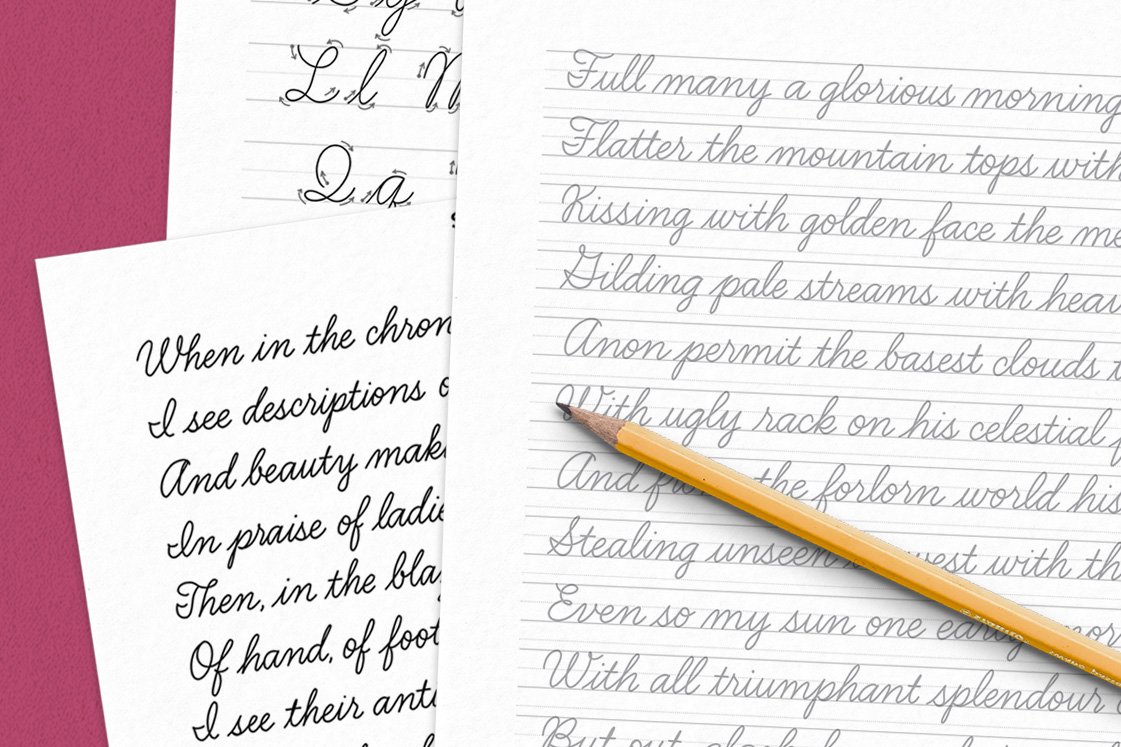 L l
Q q
When in the chron
I see descriptions
And beauty mak
In praise of ladie
Then, in the bla
Of hand, of foot
I see their ant
Full many a glorious morning
Flatter the mountain tops with
Kissing with golden face the me
Gilding pale streams with heav
Anon permit the basest clouds t
With ugly rack on his celestial
And the forlorn world his
Stealing unseen west with th
Even so my sun one early mor
With all triumphant splendour
But out